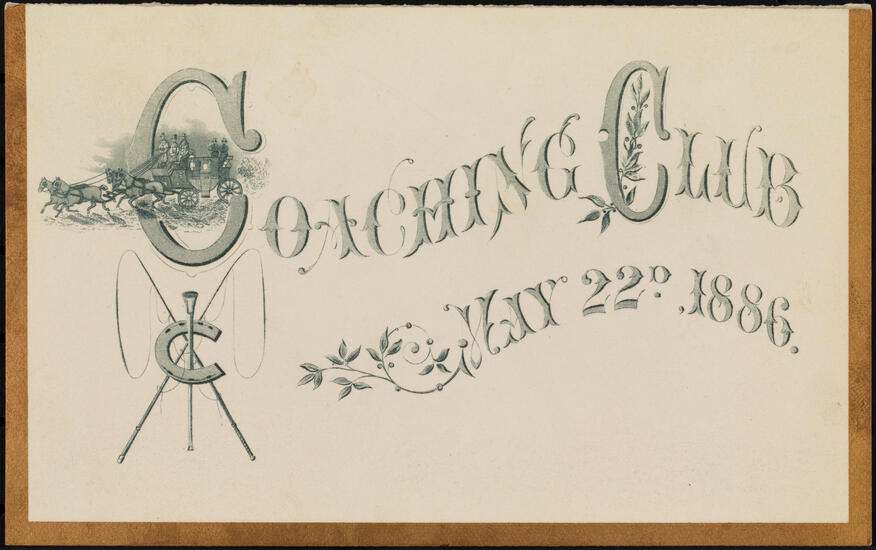 COACHING CLUB
MAY 22D, 1886.
C